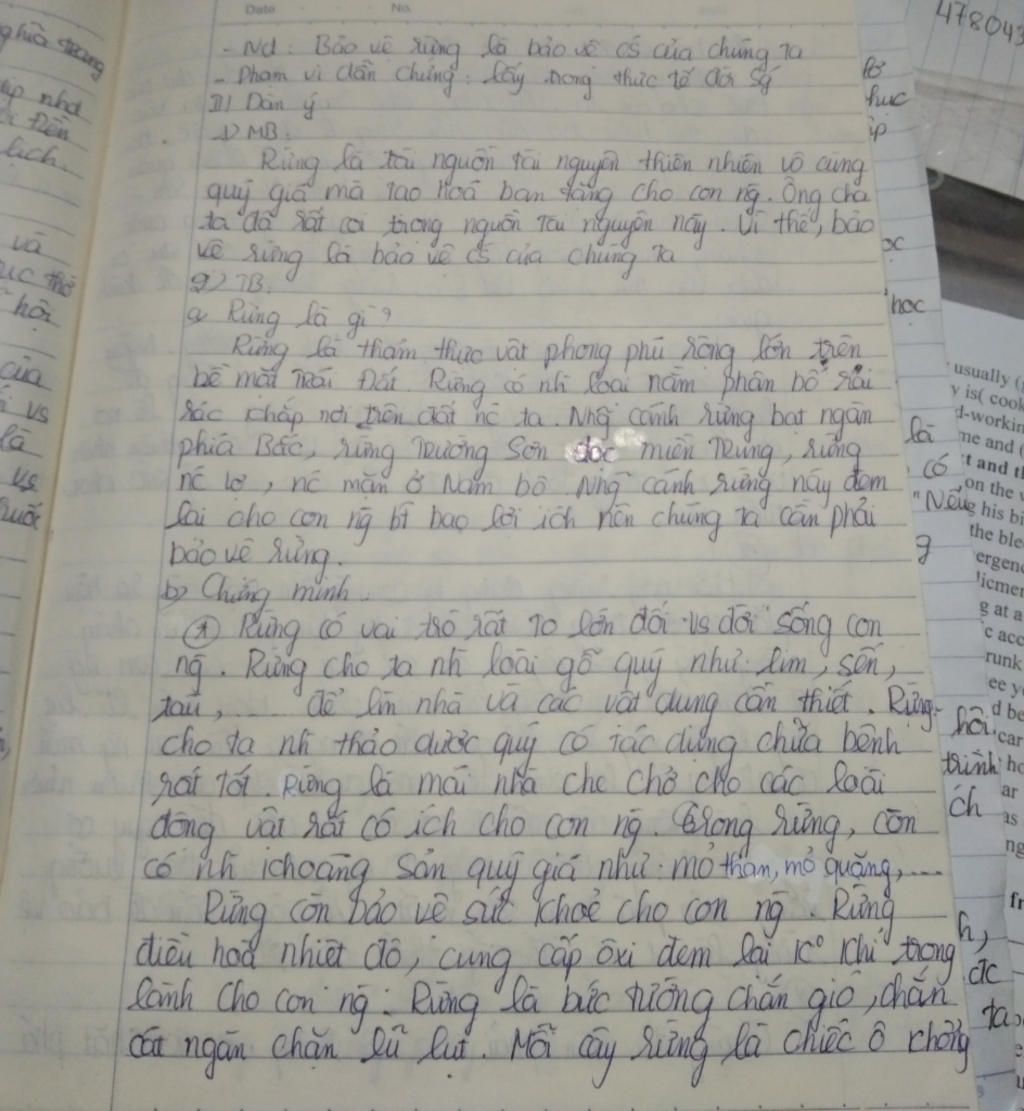 Date No.
- Nd: Bảo vệ rừng là bảo vệ cs của chúng ta
- Phạm vi dẫn chứng: lấy trong thực tế đời sg
II) Dàn ý
1) MB:
Rừng là tài nguồn tài nguyên thiên nhiên vô cùng
quý giá mà tạo hoá ban tặng cho con ng. Ông cha
ta đã rất coi trọng nguồn tài nguyên này. Vì thế, bảo
vệ rừng là bảo vệ cs của chúng ta
2) TB.
a) Rừng là gì?
Rừng là thảm thực vật phong phú rộng lớn trên
bề mặt Trái Đất. Rừng có nh loại nằm phân bố rải
rác khắp nơi trên đất nc ta. Nhg cánh rừng bạt ngàn
phía Bắc, rừng Trường Sơn dọc miền Trung, rừng
nc lợ, nc mặn ở Nam bộ. Nhg cánh rừng này đem
lại cho con ng bt bao lợi ích nên chúng ta cần phải
bảo vệ rừng.
b) Chứng minh.
Rừng có vai trò rất to lớn đối vs đời sống con
ng. Rừng cho ta nh loài gỗ quý như: lim, sến,
táu, .... để làm nhà và các vật dụng cần thiết. Rừng
cho ta nh thảo dược quý có tác dụng chữa bệnh
rất tốt. Rừng là mái nhà che chở cho các loài
động vật rất có ích cho con ng. Trong rừng, còn
có nh khoáng sản quý giá như: mỏ than, mỏ quặng, ....
Rừng còn bảo vệ sức khoẻ cho con ng. Rừng
điều hoà nhiệt độ, cung cấp ôxi đem lại k° khí trong
lành cho con ng. Rừng là bức tường chắn gió, chắn
cát ngăn chặn lũ lụt. Mỗi cây rừng là chiếc ô khổng
478043
và
hồi
của
vs
là
vs
học
là
có
"Nếu
g
hội
trình
ích
h,
đc
ta
usually
y is( cook
d-workin
me and (
t and t
on the
g his bi
the ble
ergen
licmer
g at a
c acc
runk
ee y
d be
car
ho
ar
as
ng
fr